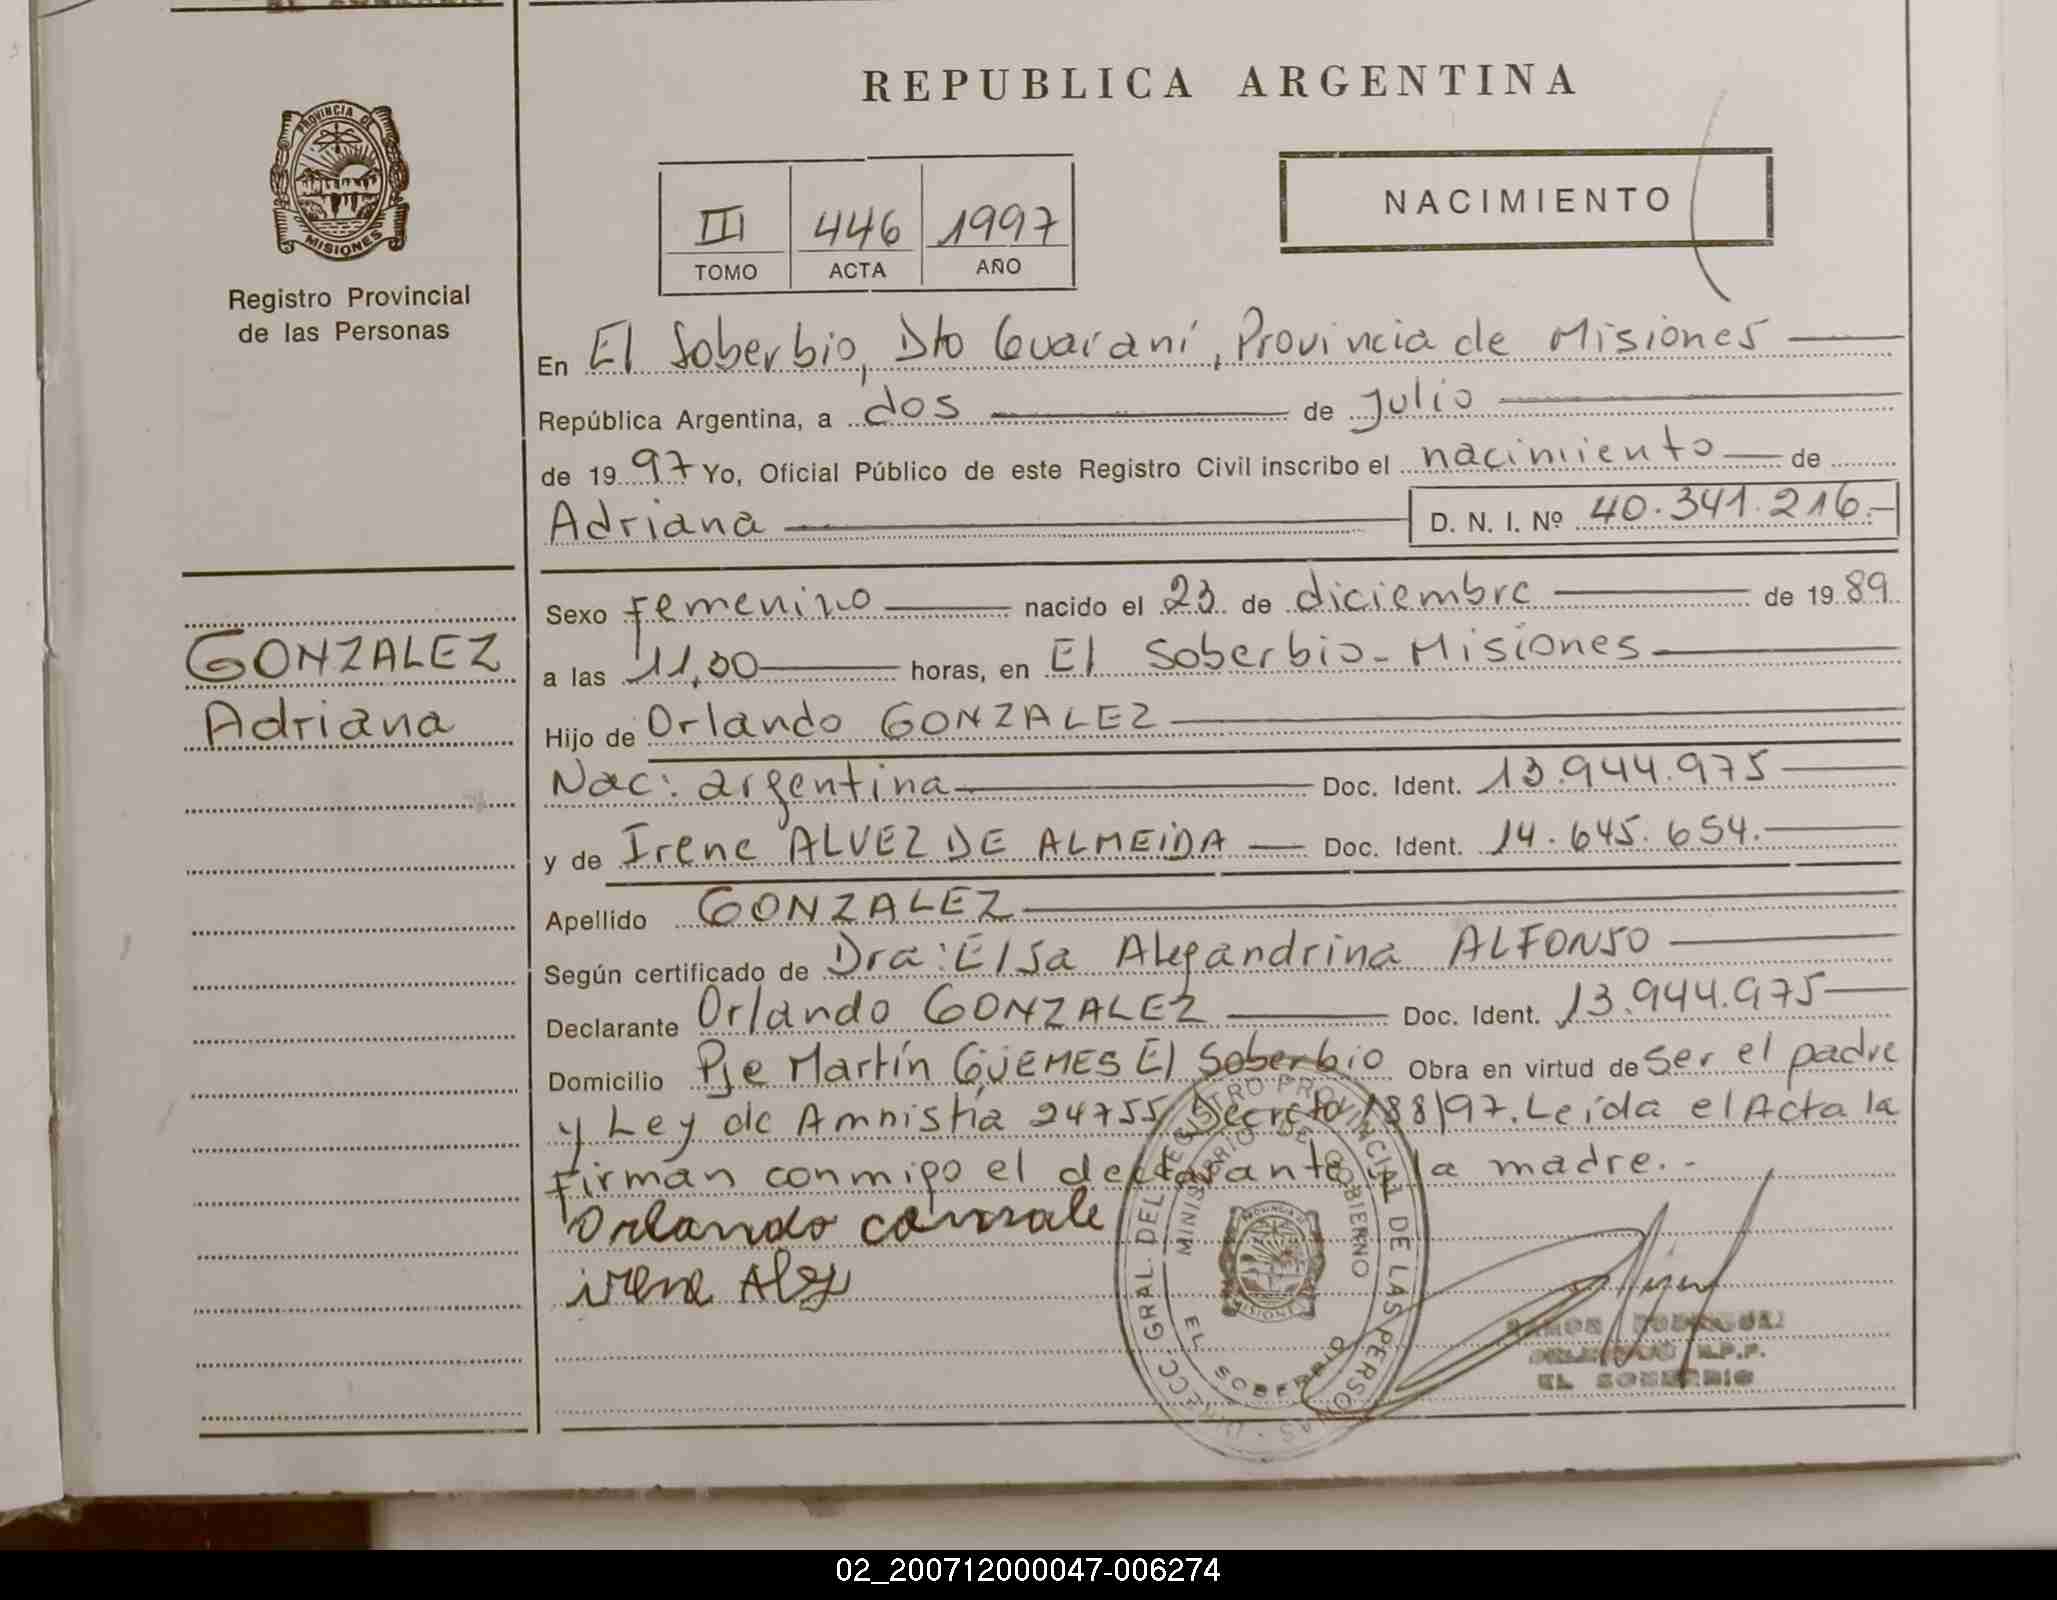 REPUBLICA ARGENTINA
PROVINCIA DE
MISIONES
Registro Provincial
de las Personas
III 446 1997
TOMO ACTA AÑO
NACIMIENTO
En El Soberbio, Dto Guaraní, Provincia de Misiones
República Argentina, a dos de Julio
de 1997 Yo, Oficial Público de este Registro Civil inscribo el nacimiento de
Adriana D. N. I. Nº 40.341.216.-
GONZALEZ
Adriana
Sexo Femenino nacido el 23 de diciembre de 1989
a las 11,00 horas, en El Soberbio - Misiones
Hijo de Orlando GONZALEZ
Nac: argentina Doc. Ident. 13.944.975
y de Irene ALVEZ DE ALMEIDA Doc. Ident. 14.645.654.
Apellido GONZALEZ
Según certificado de Dra: Elsa Alejandrina ALFONSO
Declarante Orlando GONZALEZ Doc. Ident. 13.944.975
Domicilio Pje Martín GÜEMES El Soberbio Obra en virtud de Ser el padre
y Ley de Amnistía 24755 Decreto 188/97. Leída el Acta la
firman conmigo el declarante y la madre.-
Orlando
irene
DIRECC. GRAL. DEL REGISTRO PROVINCIAL DE LAS PERSONAS
MINISTERIO DE GOBIERNO
PROVINCIA DE
MISIONES
EL SOBERBIO
RAMON
R.P.P.
EL SOBERBIO
02_200712000047-006274